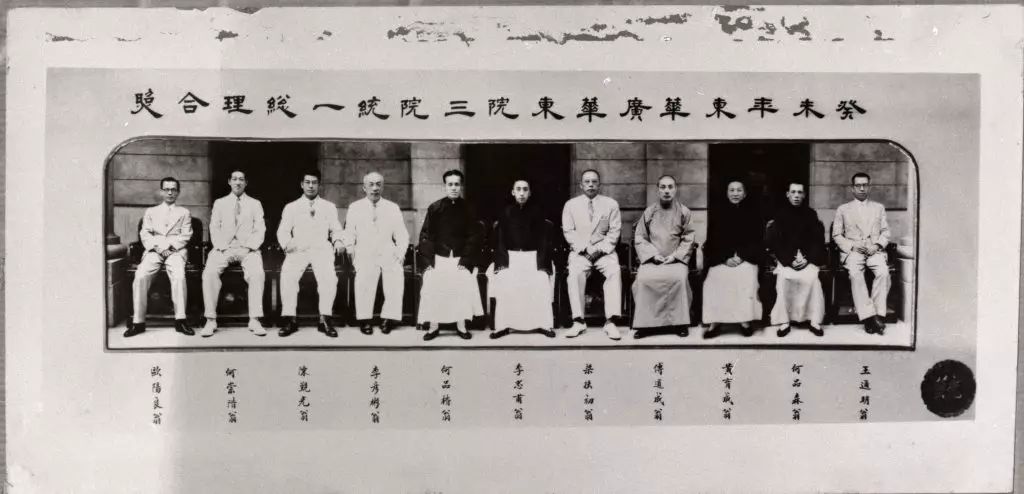 癸未年東華廣華東院三院統一総理合照
王通明翁
何品森翁
黃育咸翁
傅道咸翁
梁扶初翁
李忠甫翁
何品楷翁
李彥翁
陳光翁
何崇翁
歐陽良翁